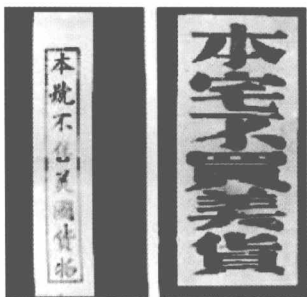 本號不售美國貨物
本宅不買美貨